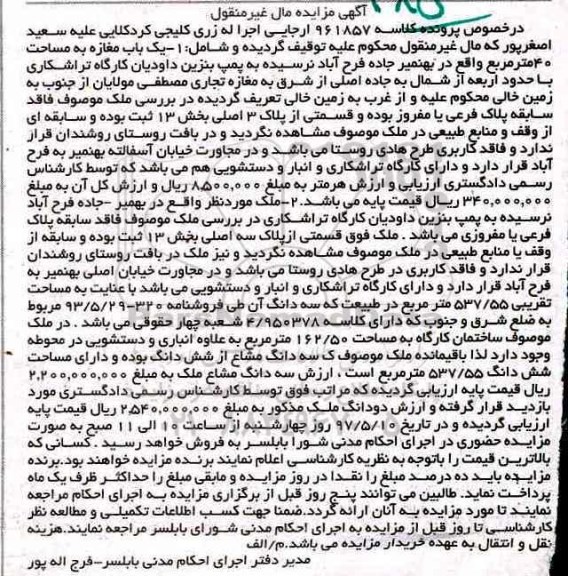 آگهی مزایده مال غیرمنقول
درخصوص پرونده کلاسه ۹۶۱۸۵۷ ارجایی اجرا له زری کلیجی کردکلایی علیه سعید
اصغرپور که مال غیرمنقول محکوم علیه توقیف گردیده و شامل:۱-یک باب مغازه به مساحت
۴۰مترمربع واقع در بهنمیر جاده فرح آباد نرسیده به پمپ بنزین داودیان کارگاه تراشکاری
با حدود اربعه از شمال به جاده اصلی از شرق به مغازه تجاری مصطفی مولایان از جنوب به
زمین خالی محکوم علیه و از غرب به زمین خالی تعریف گردیده در بررسی ملک موصوف فاقد
سابقه پلاک فرعی یا مفروز بوده و قسمتی از پلاک ۳ اصلی بخش ۱۳ ثبت بوده و سابقه ای
از وقف و منابع طبیعی در ملک موصوف مشاهده نگردید و در بافت روستای روشندان قرار
ندارد و فاقد کاربری طرح هادی روستا می باشد و در مجاورت خیابان آسفالته بهنمیر به فرح
آباد قرار دارد و دارای کارگاه تراشکاری و انبار و دستشویی هم می باشد که توسط کارشناس
رسمی دادگستری ارزیابی و ارزش هرمتر به مبلغ ۸,۵۰۰,۰۰۰ ریال و ارزش کل آن به مبلغ
۳۴۰,۰۰۰,۰۰۰ ریال قیمت پایه می باشد.۲-ملک موردنظر واقع در بهمیر -جاده فرح آباد
نرسیده به پمپ بنزین داودیان کارگاه تراشکاری در بررسی ملک موصوف فاقد سابقه پلاک
فرعی یا مفروزی می باشد . ملک فوق قسمتی ازپلاک سه اصلی بخش ۱۳ ثبت بوده و سابقه از
وقف یا منابع طبیعی در ملک موصوف مشاهده نگردید و نیز ملک در بافت روستای روشندان
قرار ندارد و فاقد کاربری در طرح هادی روستا می باشد و در مجاورت خیابان اصلی بهنمیر به
فرح آباد قرار دارد و دارای کارگاه تراشکاری و انبار و دستشویی می باشد با عنایت به مساحت
تقریبی ۵۳۷/۵۵ متر مربع در طبیعت که سه دانگ آن طی فروشنامه ۳۲۰-۹۳/۵/۲۹ مربوط
به ضلع شرق و جنوب که دارای کلاسه ۴/۹۵۰۳۷۸ شعبه چهار حقوقی می باشد . در ملک
موصوف ساختمان کارگاه به مساحت ۱۶۲/۵۰ مترمربع به علاوه انباری و دستشویی در محوطه
وجود دارد لذا باقیمانده ملک موصوف ک سه دانگ مشاع از شش دانگ بوده و دارای مساحت
شش دانگ ۵۳۷/۵۵ مترمربع است ، ارزش سه دانگ مشاع ملک به مبلغ ۲,۲۰۰,۰۰۰,۰۰۰
ریال قیمت پایه ارزیابی گردیده که مراتب فوق توسط کارشناس رسمی دادگستری مورد
بازدید قرار گرفته و ارزش دودانگ ملک مذکور به مبلغ ۲,۵۴۰,۰۰۰,۰۰۰ ریال قیمت پایه
ارزیابی گردیده و در تاریخ ۹۷/۵/۱۰ روز چهارشنبه از ساعت ۱۰ الی ۱۱ صبح به صورت
مزایده حضوری در اجرای احکام مدنی شورا بابلسر به فروش خواهد رسید . کسانی که
بالاترین قیمت را باتوجه به نظریه کارشناسی اعلام نمایند برنده مزایده خواهند بود.برنده
مزایده باید ده درصد مبلغ را نقدا در روز مزایده و مابقی مبلغ را حداکثر ظرف یک ماه
پرداخت نماید. طالبین می توانند پنج روز قبل از برگزاری مزایده به اجرای احکام مراجعه
نمایند تا مورد مزایده به آنان ارائه گردد.ضمنا جهت کسب اطلاعات تکمیلی و مطالعه نظر
کارشناسی تا روز قبل از مزایده به اجرای احکام مدنی شورای بابلسر مراجعه نمایند.هزینه
نقل و انتقال به عهده خریدار مزایده می باشد.م/الف
مدیر دفتر اجرای احکام مدنی بابلسر-فرج اله پور